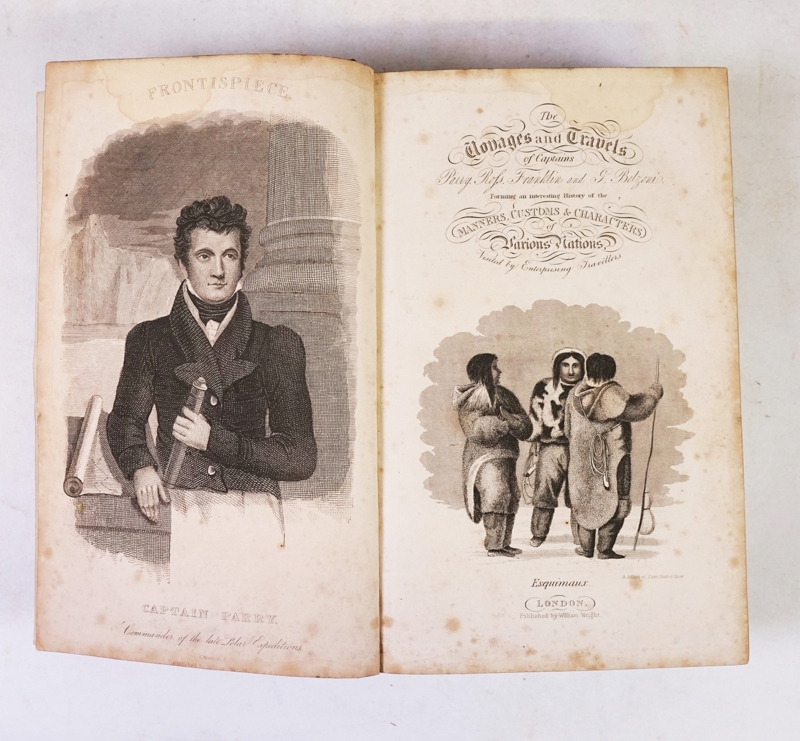 FRONTISPIECE.
CAPTAIN PARRY.
Commander of the late Polar Expeditions.
The
Voyages and Travels
of Captains
Parry, Ross, Franklin and G. Belzoni.
Forming an interesting History of the
MANNERS, CUSTOMS & CHARACTERS,
of
Various Nations,
Visited by Enterprising Travellers
Esquimaux.
LONDON,
Published by William Wright.